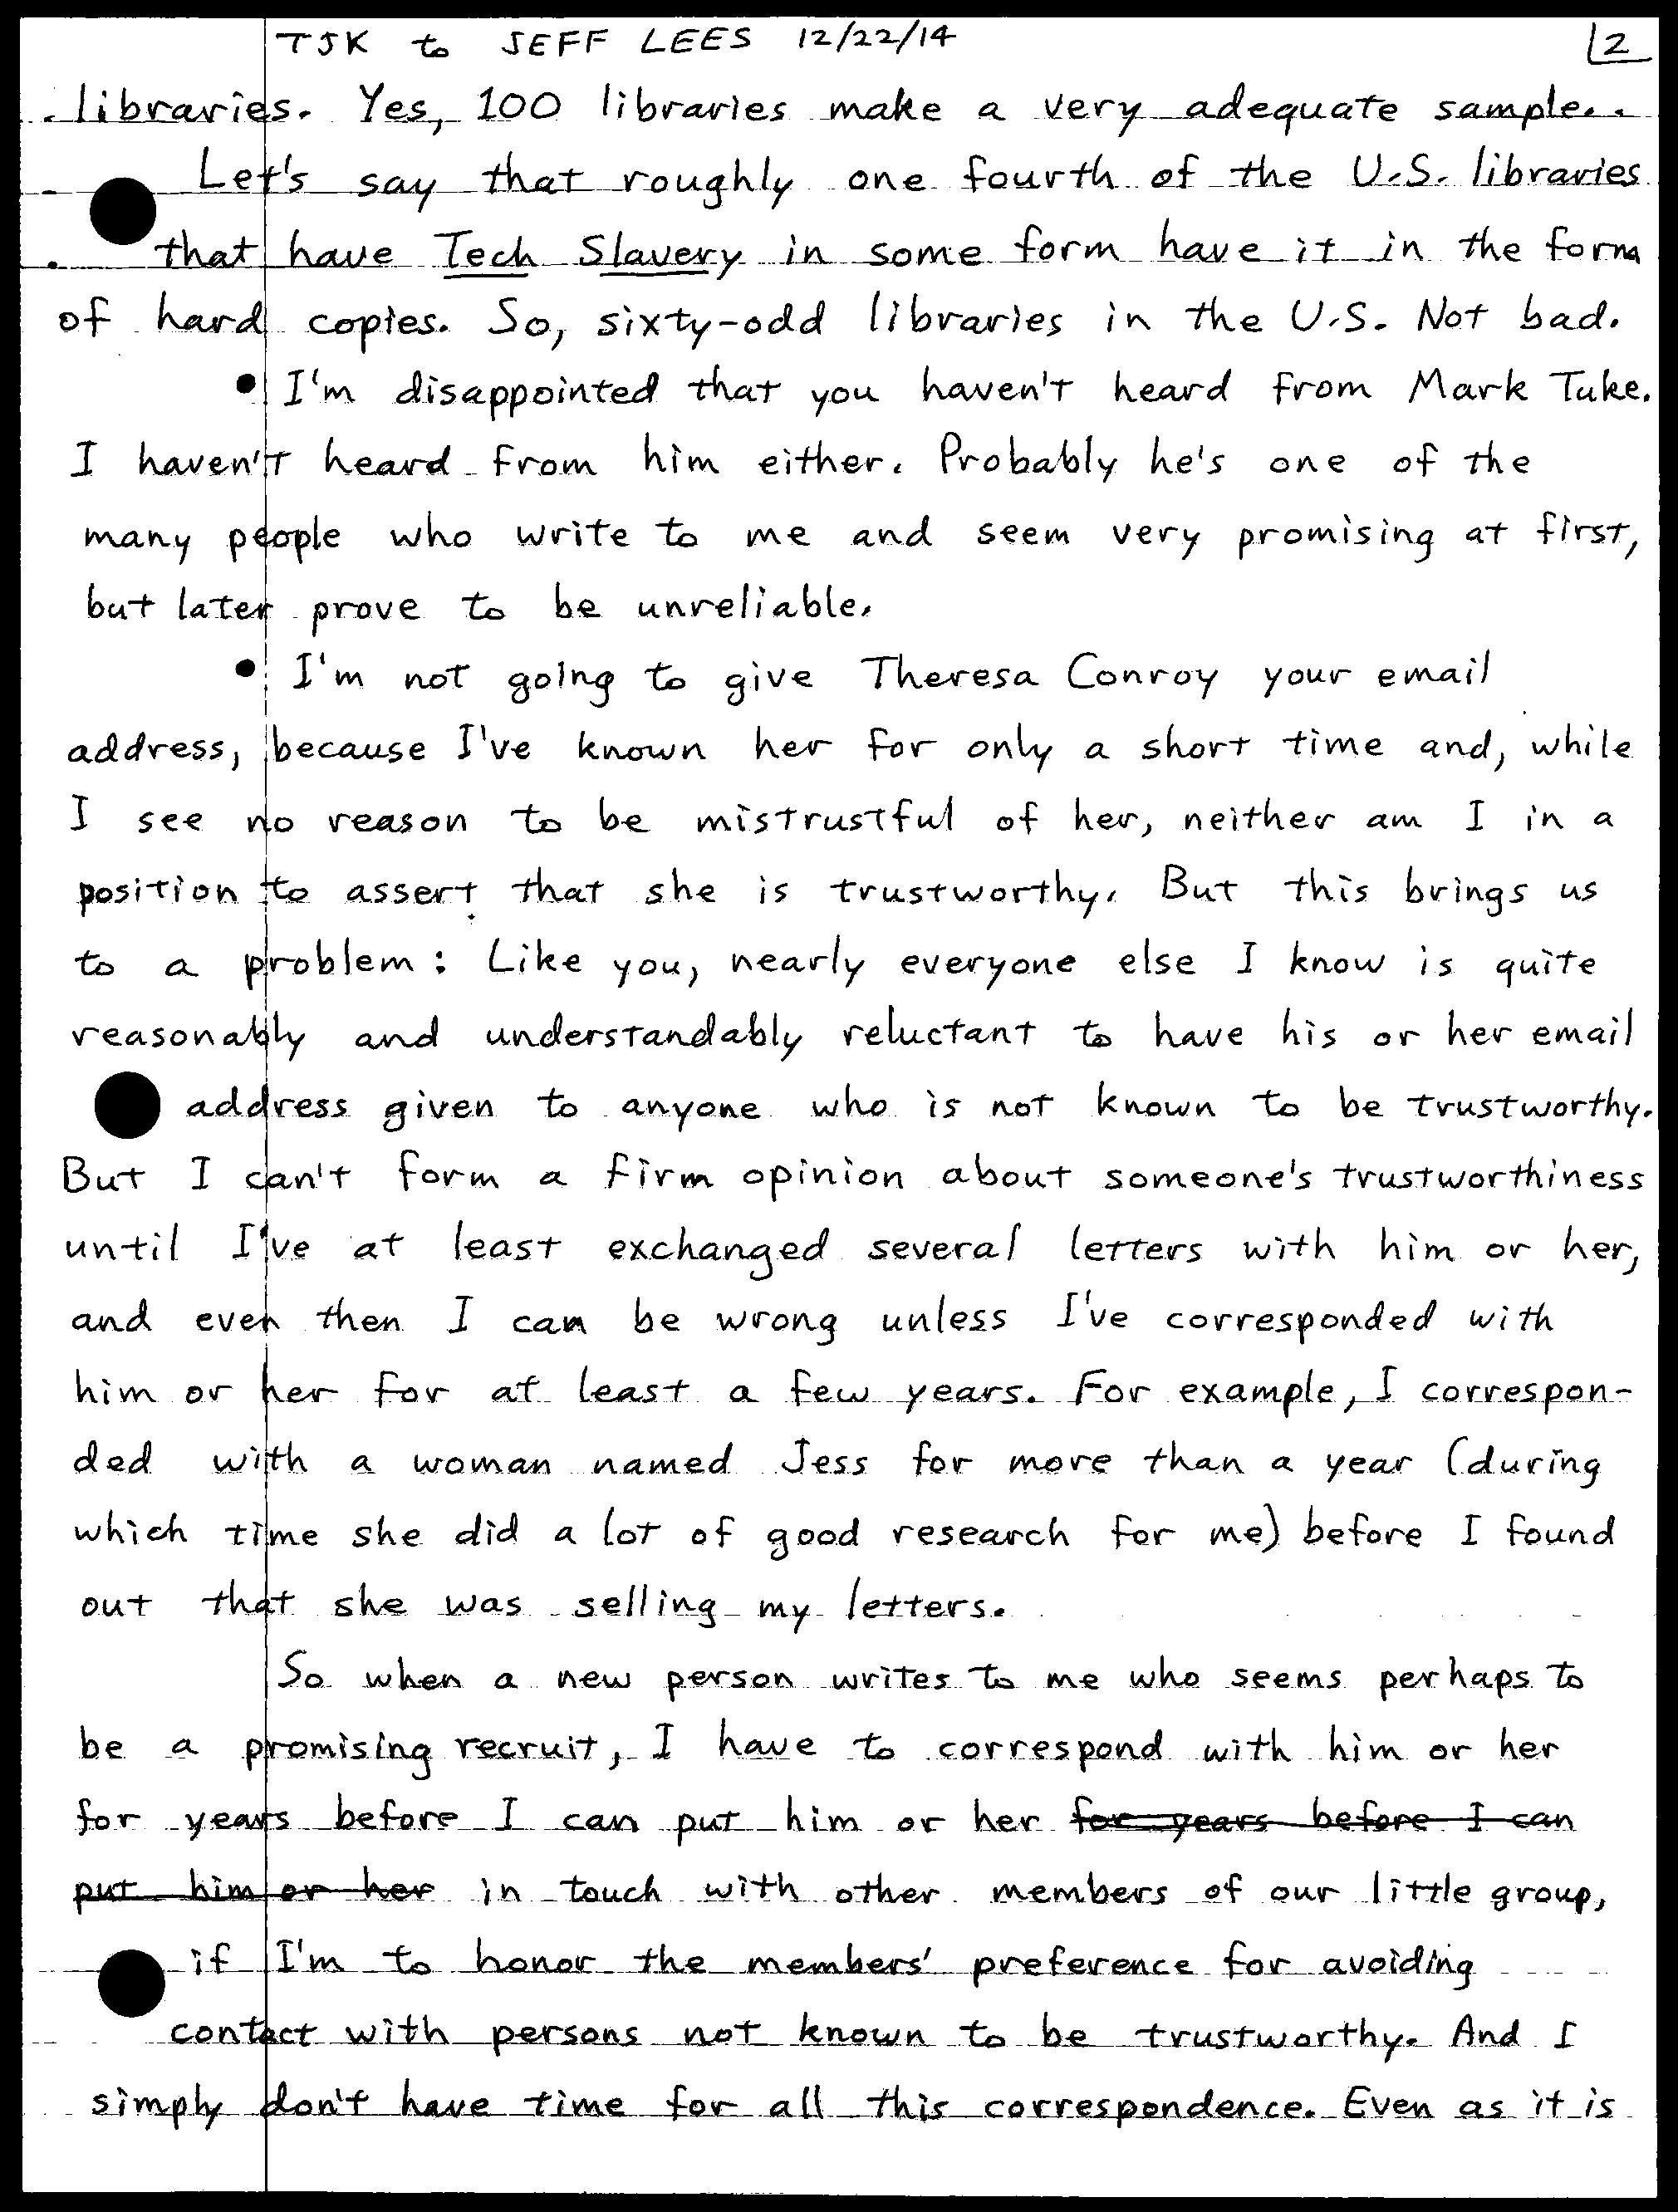 TJK to JEFF LEES 12/22/14 2
libraries. Yes, 100 libraries make a very adequate sample.
Let's say that roughly one fourth of the U.S. libraries
that have Tech Slavery in some form have it in the form
of hard copies. So, sixty-odd libraries in the U.S. Not bad.
• I'm disappointed that you haven't heard from Mark Tuke.
I haven't heard from him either. Probably he's one of the
many people who write to me and seem very promising at first,
but later prove to be unreliable.
• I'm not going to give Theresa Conroy your email
address, because I've known her for only a short time and, while
I see no reason to be mistrustful of her, neither am I in a
position to assert that she is trustworthy. But this brings us
to a problem: Like you, nearly everyone else I know is quite
reasonably and understandably reluctant to have his or her email
address given to anyone who is not known to be trustworthy.
But I can't form a firm opinion about someone's trustworthiness
until I've at least exchanged several letters with him or her,
and even then I can be wrong unless I've corresponded with
him or her for at least a few years. For example, I correspon-
ded with a woman named Jess for more than a year (during
which time she did a lot of good research for me) before I found
out that she was selling my letters.
So when a new person writes to me who seems perhaps to
be a promising recruit, I have to correspond with him or her
for years before I can put him or her for years before I can
put him or her in touch with other members of our little group,
if I'm to honor the members' preference for avoiding
contact with persons not known to be trustworthy. And I
simply don't have time for all this correspondence. Even as it is